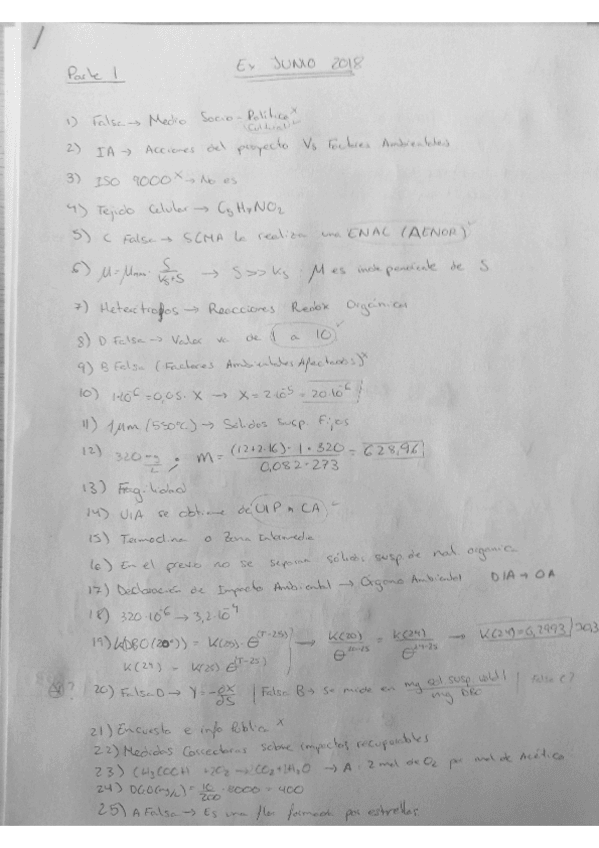 Parte 1
Ex JUNIO 2018
1) Falsa → Medio Socio-Político x
(Cultural)
2) IA → Acciones del proyecto Vs Factores Ambientales
3) ISO 9000 x → No es
4) Tejido Celular → C5H7NO2
5) C Falsa → SCMA la realiza una ENAC (AENOR)
6) μ = μmm · S/(Ks+S) → S>>Ks μ es independiente de S
7) Heterótrofos → Reacciones Redox Orgánicas
8) D Falsa → Valor va de 1 a 10
9) B Falsa (Factores Ambientales Afectados) x
10) 1·10^-6 = 0,05 · X → X = 2·10^-5 = 20·10^-6
11) 1μm (550ºC) → Sólidos Susp. Fijos
12) 320 mg/L ; m = (12+2·16) · 1 · 320 / 0,082 · 273 = 628,96
13) Fragilidad
14) UIA se obtiene de UIP x CA
15) Termoclina o Zona Intermedia
16) En el previo no se separan sólidos susp de nat organica
17) Declaración de Impacto Ambiental → Órgano Ambiental DIA → OA
18) 320·10^-6 → 3,2·10^-4
19) K(DBO(20º)) = K(25) · θ^(T-25) → K(20)/θ^20-25 = K(29)/θ^29-25 → K(29) = 0,2993
K(29) = K(25) θ^(T-25)
20) Falsa D → Y = -∂X/∂S | Falsa B → se mide en mg sol susp. volátil / mg DBO | Falsa C?
21) Encuesta e info Pública x
22) Medidas Correctoras sobre impactos recuperables
23) CH3COOH + 2O2 → 2CO2 + 2H2O → A: 2 mol de O2 por mol de Acético
24) DQO(mg/L) = 10/200 · 8000 = 400
25) A Falsa → Es una flor formada por estrellas